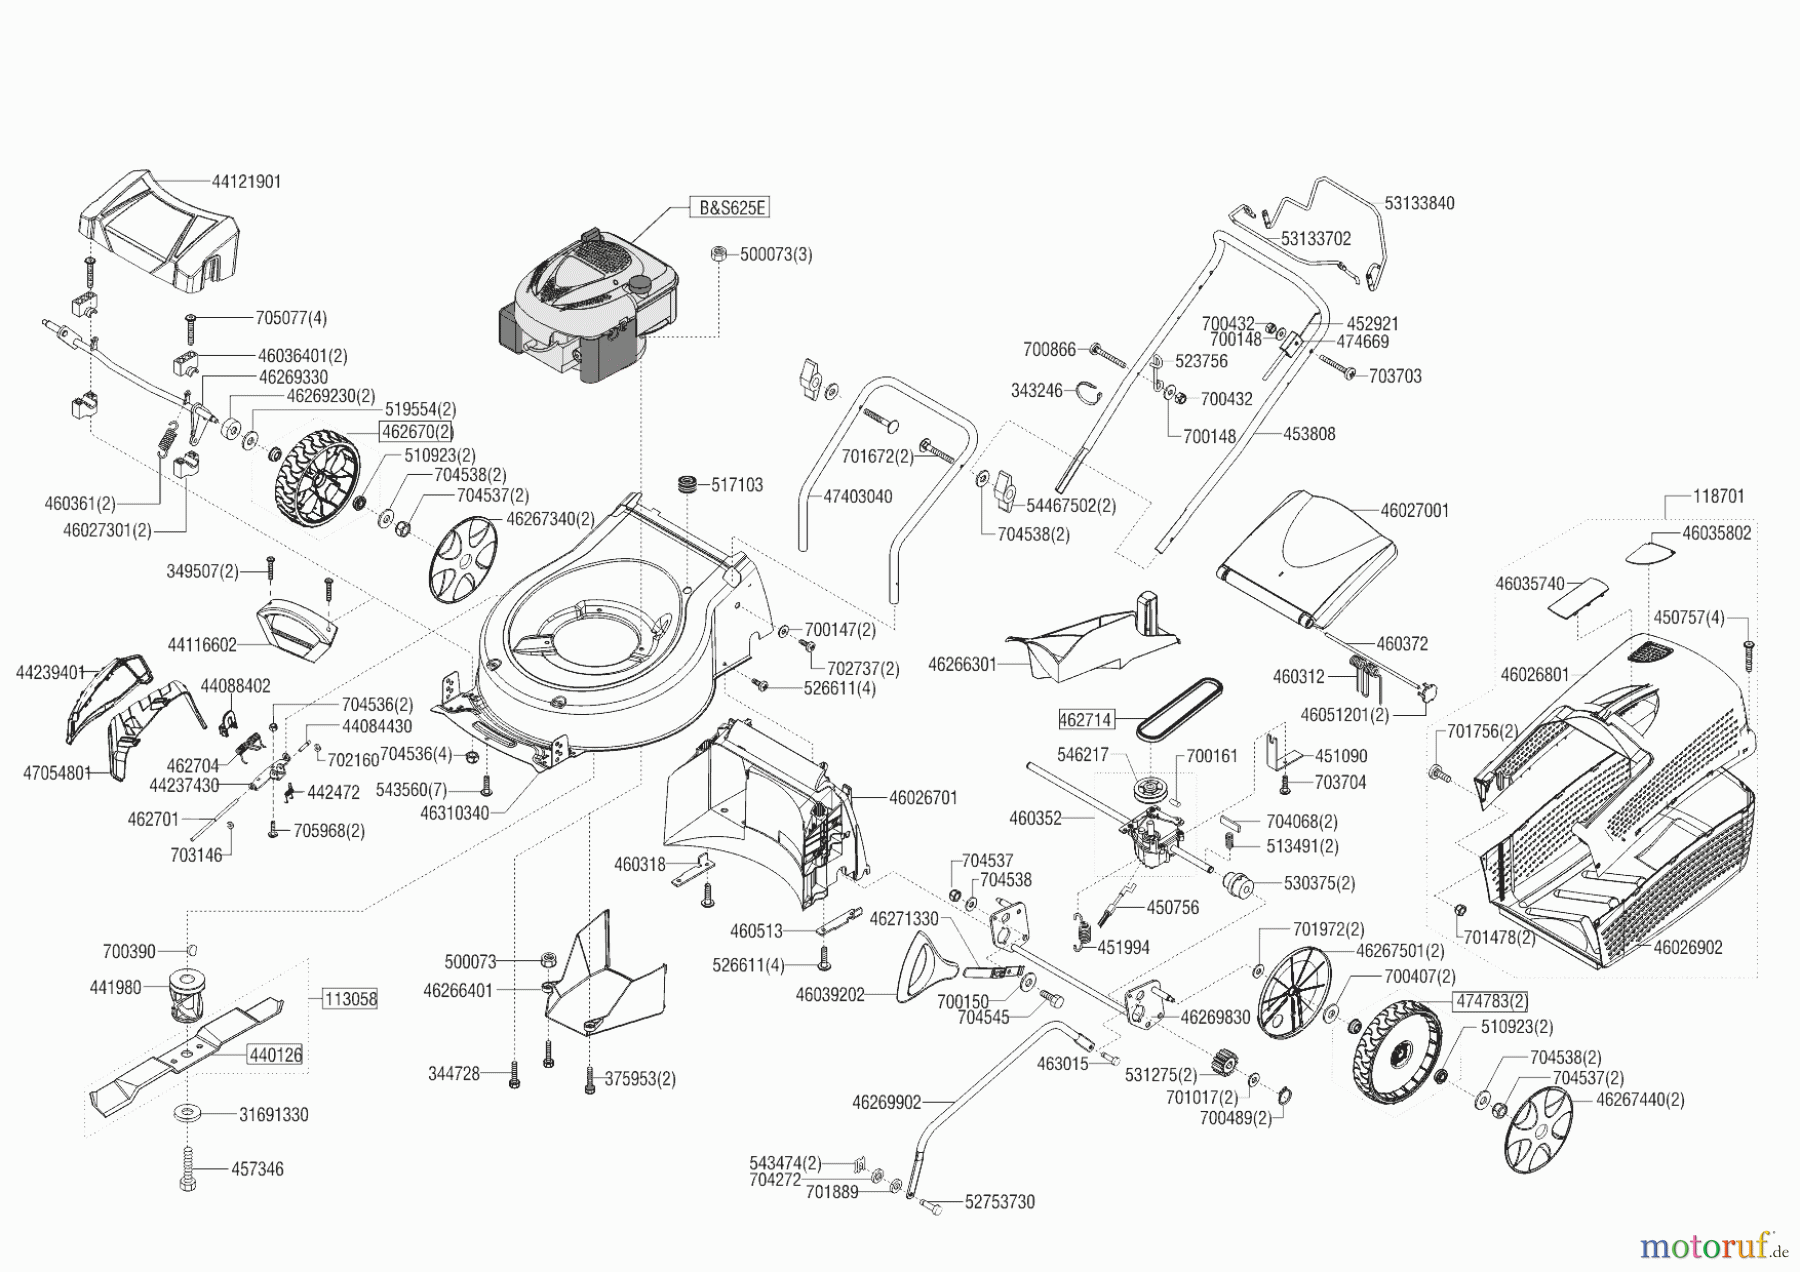 44121901
B&S625E
500073(3)
53133840
53133702
705077(4)
46036401(2)
46269330
46269230(2)
519554(2)
462670(2)
510923(2)
704538(2)
704537(2)
46267340(2)
460361(2)
46027301(2)
517103
700866
343246
700432
700148
452921
474669
523756
703703
700432
700148
453808
701672(2)
47403040
54467502(2)
704538(2)
46027001
118701
46035802
46035740
450757(4)
349507(2)
44116602
44239401
44088402
47054801
704536(2)
44084430
702160
462704
44237430
442472
462701
705968(2)
703146
704536(4)
543560(7)
46310340
700147(2)
702737(2)
526611(4)
46266301
460372
460312
46051201(2)
46026801
701756(2)
462714
546217
700161
451090
703704
460352
704068(2)
513491(2)
530375(2)
450756
451994
46026701
460318
460513
526611(4)
704537
704538
46271330
46039202
700150
704545
701972(2)
46267501(2)
700407(2)
474783(2)
510923(2)
704538(2)
704537(2)
46267440(2)
701478(2)
46026902
700390
441980
113058
440126
31691330
457346
500073
46266401
344728
375953(2)
46269830
463015
531275(2)
701017(2)
700489(2)
46269902
543474(2)
704272
701889
52753730
motoruf.de